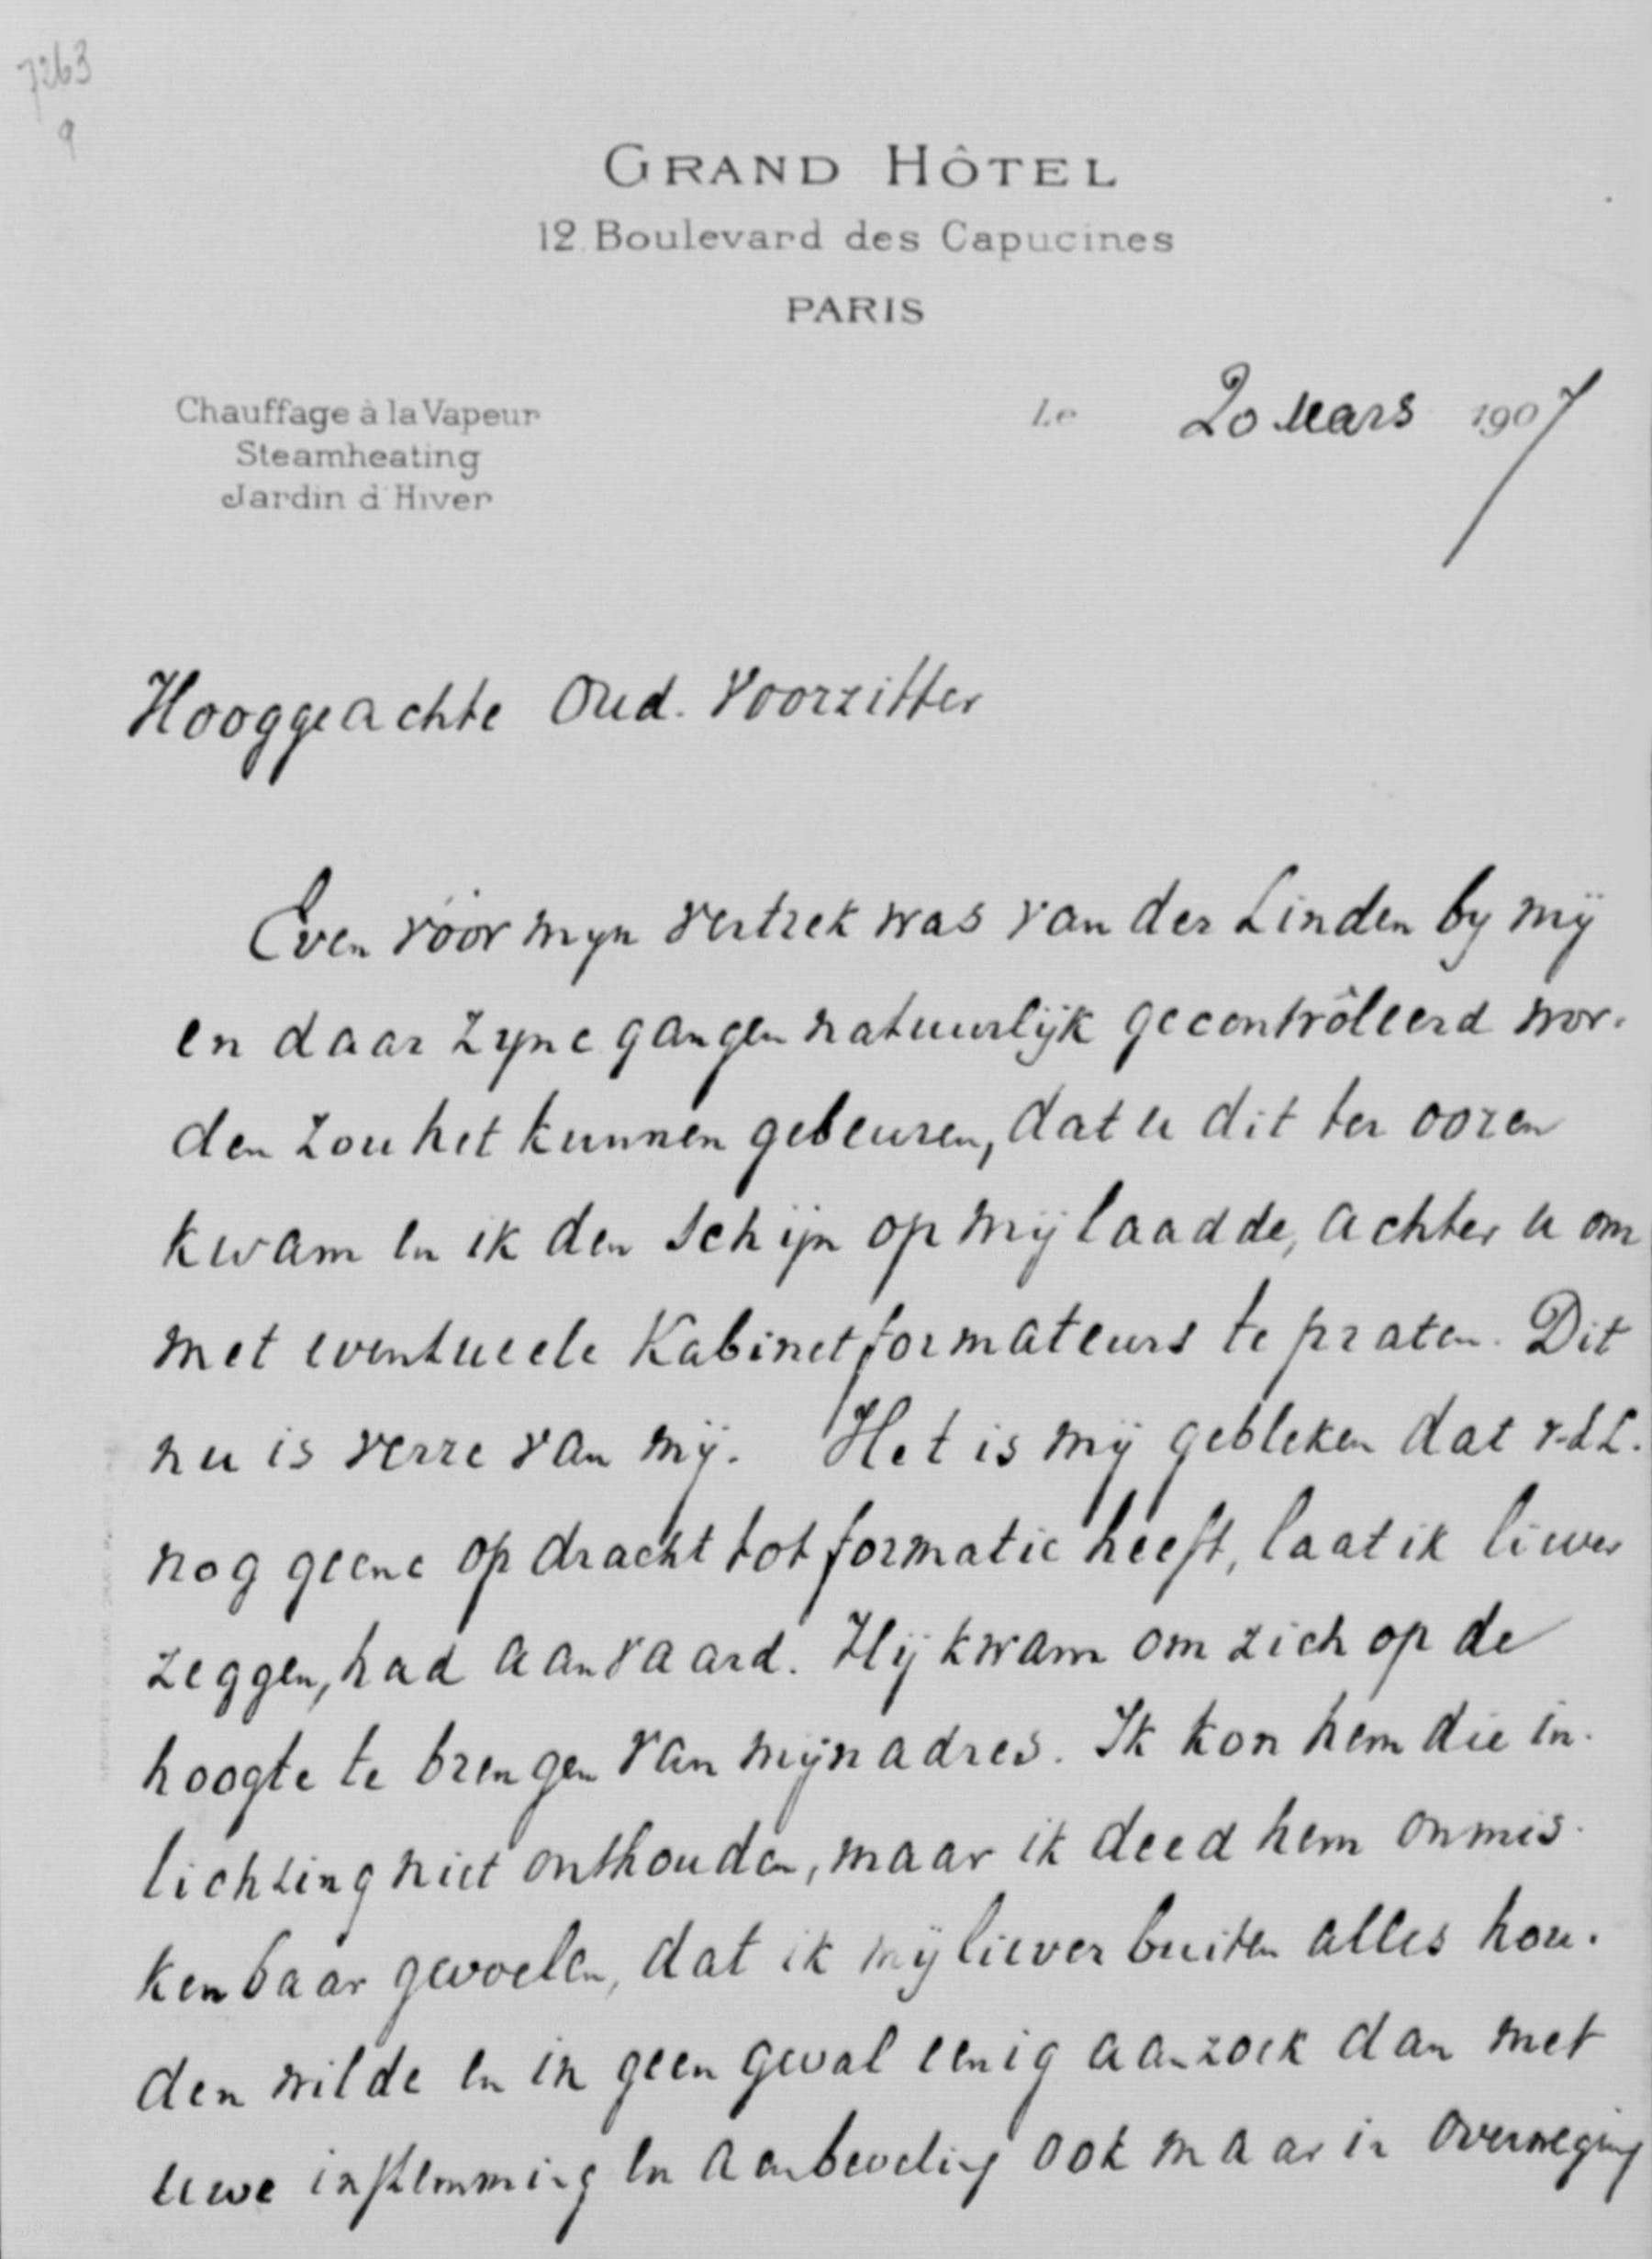 7263
9
GRAND HÔTEL
12. Boulevard des Capucines
PARIS
Chauffage à la Vapeur
Steamheating
Jardin d'Hiver
Le 20 Mars 1907
Hooggeachte Oud-Voorzitter
Even vóór myn vertrek was van der Linden by mij
en daar zyne gangen natuurlijk gecontrôleerd wor-
den zou het kunnen gebeuren, dat u dit ter ooren
kwam en ik den schijn op mij laadde, achter u om
met eventueele Kabinetformateurs te praten. Dit
nu is verre van mij. Het is mij gebleken dat v.d.L.
nog geene opdracht tot formatie heeft, laat ik liever
zeggen, had aanvaard. Hij kwam om zich op de
hoogte te brengen van mijn adres. Ik kon hem die in-
lichting niet onthouden, maar ik deed hem onmis-
kenbaar gevoelen, dat ik mij liever buiten alles hou-
den wilde en in geen geval eenig aanzoek dan met
uwe instemming en aanbeveling ook maar in overweging